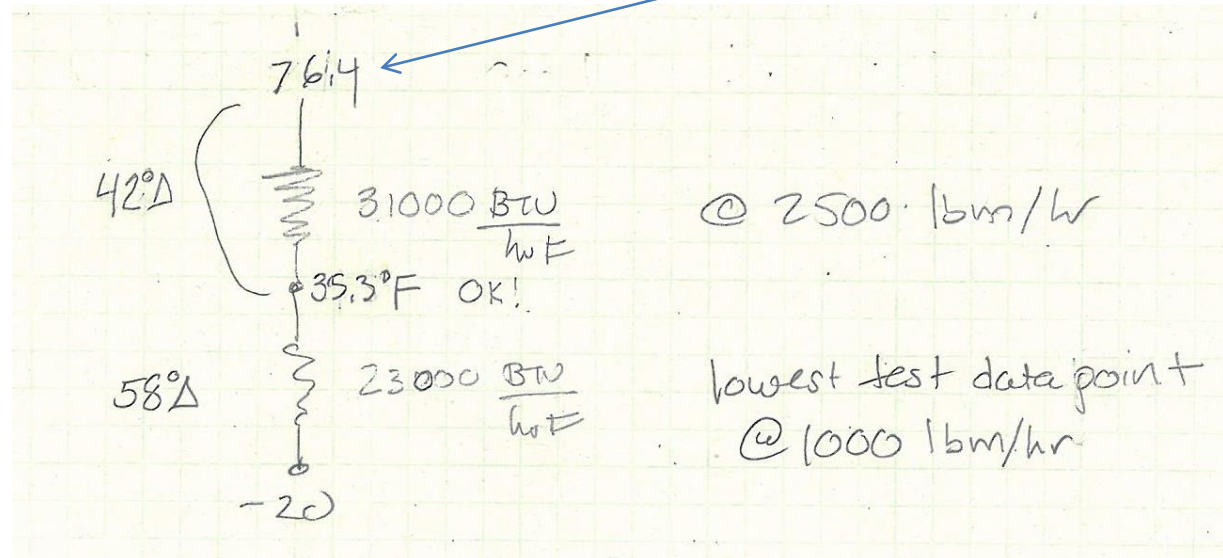 76.4
42°Δ
31000 BTU
hr F
@ 2500 lbm/hr
35.3°F OK!
58°Δ
23000 BTU
hr F
lowest test data point
@ 1000 lbm/hr
-20